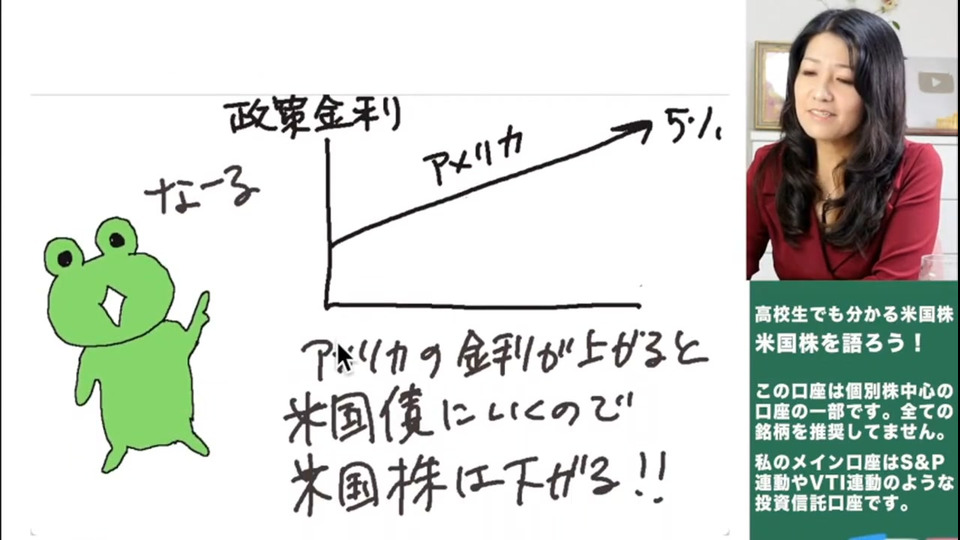 政策金利
アメリカ
5%
なーる
アメリカの金利が上がると
米国債にいくので
米国株は下がる!!
高校生でも分かる米国株
米国株を語ろう！
この口座は個別株中心の
口座の一部です。全ての
銘柄を推奨してません。
私のメイン口座はS&P
連動やVTI連動のような
投資信託口座です。